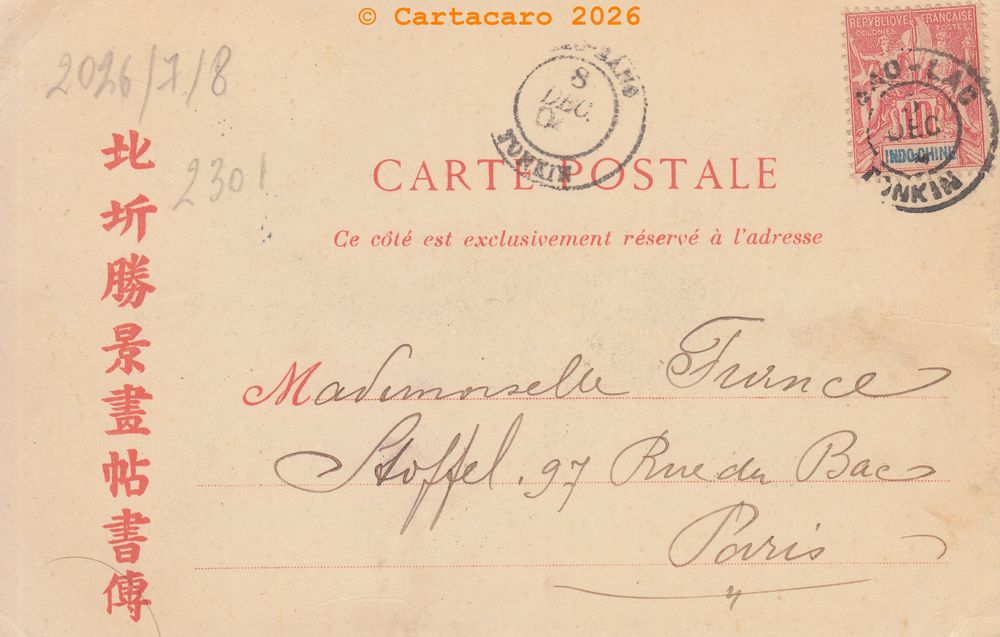 © Cartacaro 2026
2026/7/8
2301
北圻勝景畫帖書傳
8
DEC.
TONKIN
REPUBLIQUE FRANÇAISE
COLONIES POSTES
10
INDO-CHINE
BAO-LAC
DEC
TONKIN
CARTE POSTALE
Ce côté est exclusivement réservé à l'adresse
Mademoiselle France
Stoffel. 97 Rue du Bac
Paris